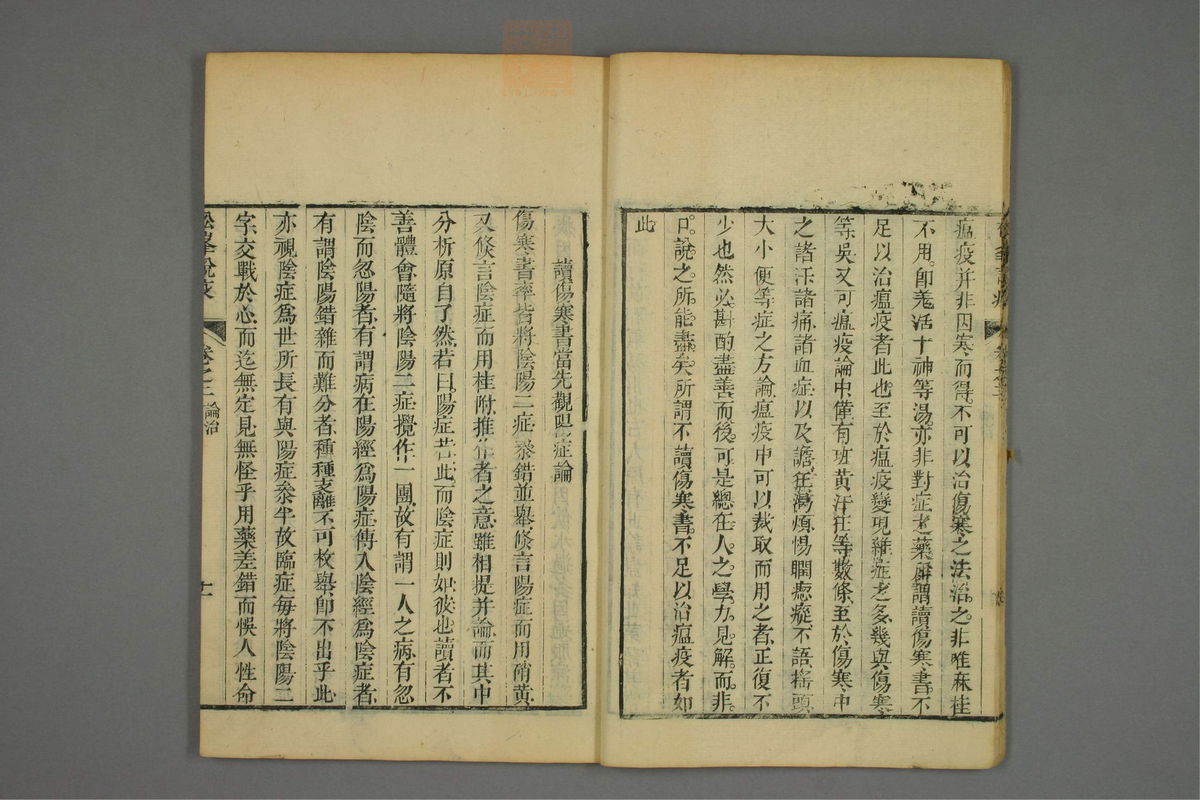 瘟疫并非因寒而得不可以治傷寒之法治之非唯麻桂
不用即羗活十神等湯亦非對症之藥所謂讀傷寒書不
足以治瘟疫者此也至於瘟疫變現雜症之多幾與傷寒
等吳又可瘟疫論中僅有班黃汗狂等數條至於傷寒中
之諸汗諸痛諸血症以及譫狂渴煩惕瞤瘛瘲不語搖頭
大小便等症之方論瘟疫中可以裁取而用之者正復不
少也然必斟酌盡善而後可是總在人之學力見解而非
口說之所能盡矣所謂不讀傷寒書不足以治瘟疫者如
此
讀傷寒書當先觀陽症論
傷寒書率皆將陰陽二症叅錯並舉倐言陽症而用硝黃
又倐言陰症而用桂附推作者之意雖相提并論而其中
分析原自了然若曰陽症若此而陰症則如彼也讀者不
善體會隨將陰陽二症攪作一團故有謂一人之病有忽
陰而忽陽者有謂病在陽經爲陽症傳入陰經爲陰症者
有謂陰陽錯雜而難分者種種支離不可枚舉即不出乎此
亦視陰症爲世所長有與陽症叅半故臨症每將陰陽二
字交戰於心而迄無定見無怪乎用藥差錯而悞人性命
松峯說疫
卷之二
論治
十一